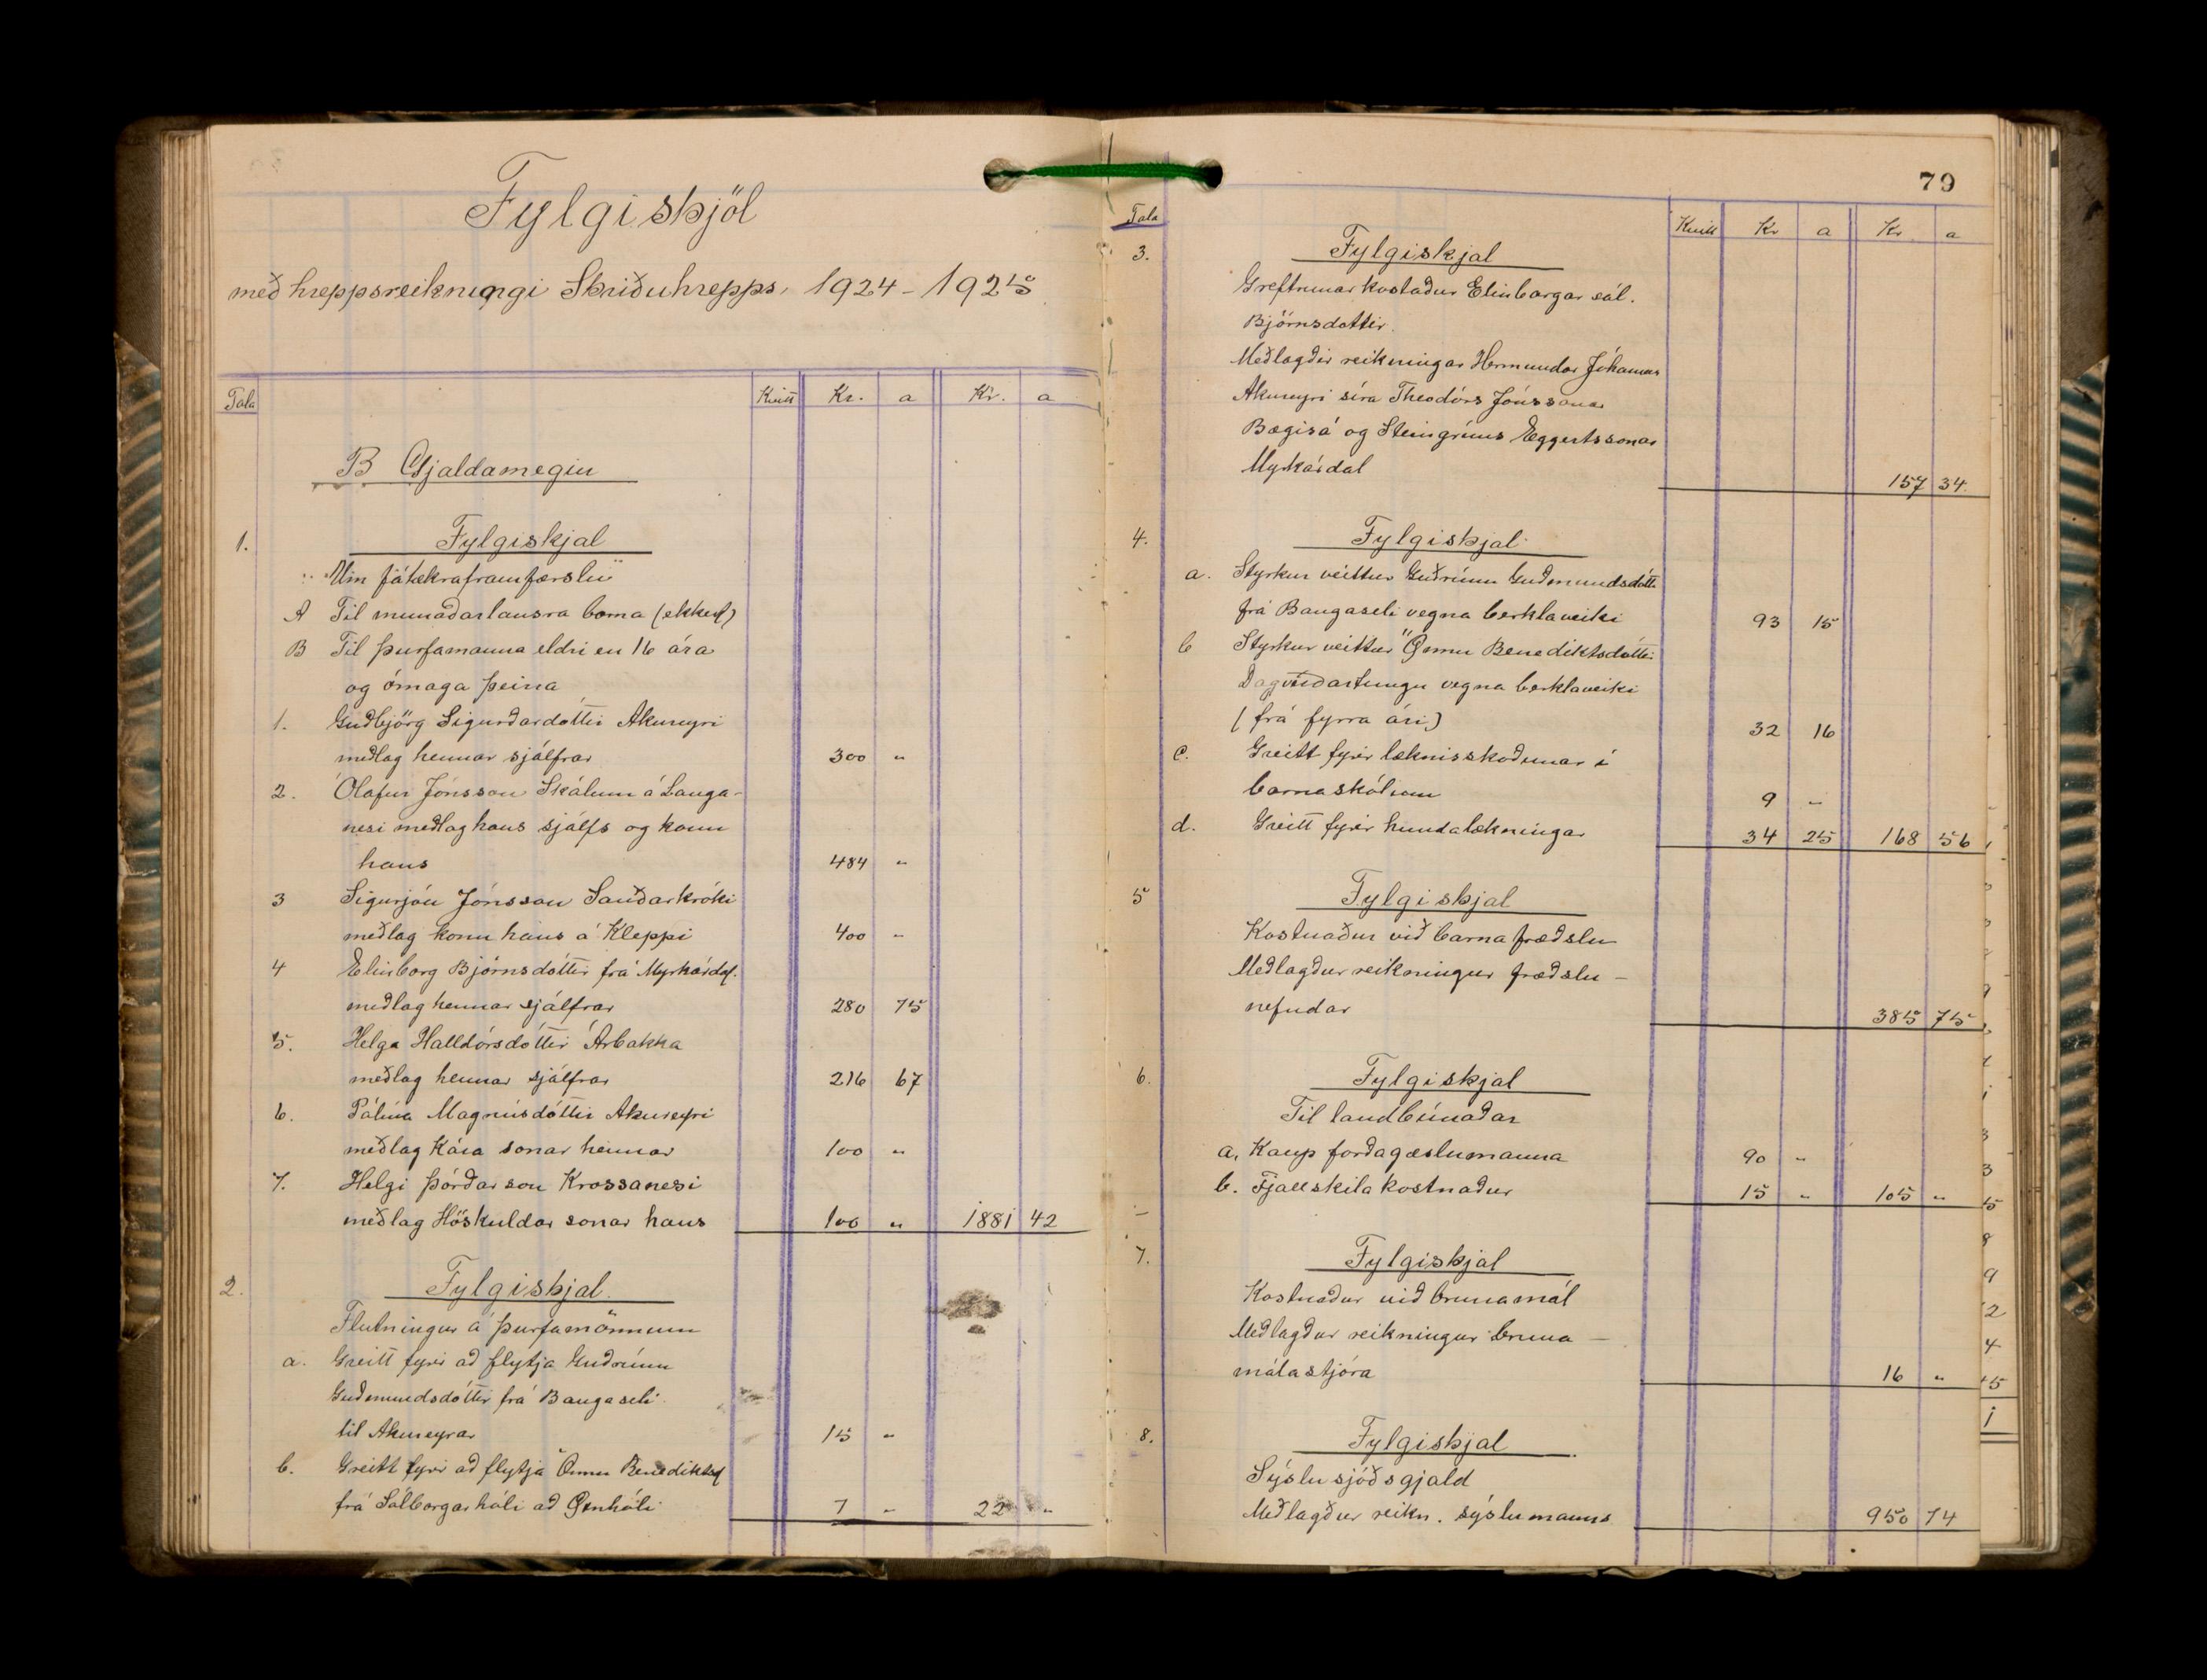 Fylgiskjöl
með hreppsreikningi Skriðuhrepps. 1924 - 1925
Tala Kvitt Kr. a Kr. a
B Gjaldamegin
1. Fylgiskjal
"Um fátækraframfærslu"
A Til munaðarlausra barna (ekkert)
B Til þurfamanna eldri en 16 ára
og ómaga þeirra
1. Guðbjörg Sigurðardóttir Akureyri
meðlag hennar sjálfrar 300 "
2. Ólafur Jónsson Skálum á Langa-
nesi meðlag hans sjálfs og konu
hans 484 "
3 Sigurjón Jónsson Sauðarkróki
meðlag konu hans á Kleppi 400 "
4 Elinborg Björnsdóttir frá Myrkárdal.
meðlag hennar sjálfrar 280 75
5. Helga Halldórsdóttir Árbakka
meðlag hennar sjálfrar 216 67
6. Pálína Magnúsdóttir Akureyri
meðlag Kára sonar hennar 100 "
7. Helgi Þórðarson Krossanesi
meðlag Höskuldar sonar hans 100 " 1881 42
2. Fylgiskjal.
Flutningur á þurfamönnum
a. Greitt fyrir að flytja Guðrúnu
Guðmundsdóttir frá Baugaseli
til Akureyrar 15 "
b. Greitt fyrir að flytja Önnu Benediktsd
frá Sólborgarhóli að Efnhóli 7 " 22 "
79
Tala Kvitt Kr a Kr. a
3. Fylgiskjal
Greftrunarkostaður Elinborgar sál.
Björnsdottir.
Meðlagðir reikningar Hermundar Jóhannes
Akureyri síra Theodórs Jónssonar
Bægisá og Steingríms Eggertssonar
Myrkárdal 157 34.
4. Fylgiskjal
a. Styrkur veittur Guðrúnu Guðmundsdótt.
frá Baugaseli vegna berklaveiki 93 15
b Styrkur veittur Önnu Benediktsdóttir
Dagverðartungu vegna berklaveiki
(frá fyrra ári) 32 16
c. Greitt fyrir læknisskoðunar í
barnaskólum 9 "
d. Greitt fyrir hundalækningar 34 25 168 56
5 Fylgiskjal
Kostnaður við barnafræðslu
Meðlagður reikningur fræðslu -
nefndar 385 75
6. Fylgiskjal
Til landbúnaðar
a. Kaup forðagæslumanna 90 "
b. Fjallskilakostnaður 15 " 105 "
7. Fylgiskjal
Kostnaður við brunamál
Meðlagður reikningur bruna -
málastjóra 16 "
8. Fylgiskjal
Sýslusjóðsgjald
Meðlagður reikn. sýslumanns 950 74